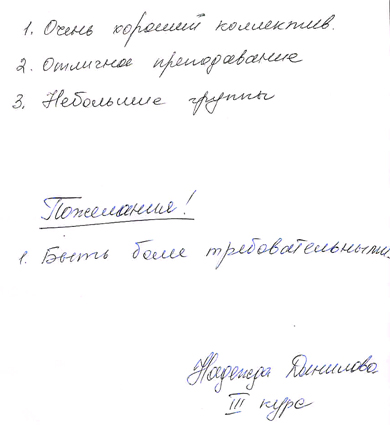 1. Очень хороший коллектив.
2. Отличное преподавание
3. Небольшие группы
Пожелания!
1. Быть боле требовательными.
Надежда Данилова
III курс